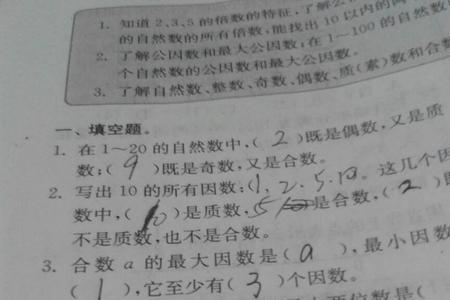 1. 知道2、3、5的倍数的特征,了解公
的自然数的所有倍数;能找出10以内的两
2. 了解公因数和最大公因数;在1~100的自然数
个自然数的公因数和最大公因数。
3. 了解自然数、整数、奇数、偶数、质(素)数和合数
一、填空题。
1. 在1~20的自然数中,( 2 )既是偶数,又是质
数;( 9 )既是奇数,又是合数。
2. 写出10的所有因数:(1、2、5、10。这几个因
数中,( )是质数,5 是合数,( 2 )
不是质数,也不是合数。
3. 合数a的最大因数是( a ),最小因数
( 1 ),它至少有( 3 )个因数。
位数是(